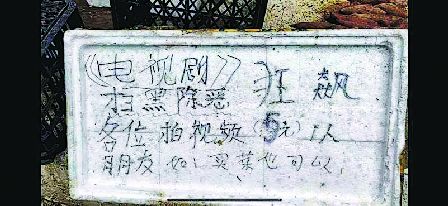 《电视剧》
扫黑除恶 狂飙
各位拍视频(5元)1人
朋友如买菜也可以